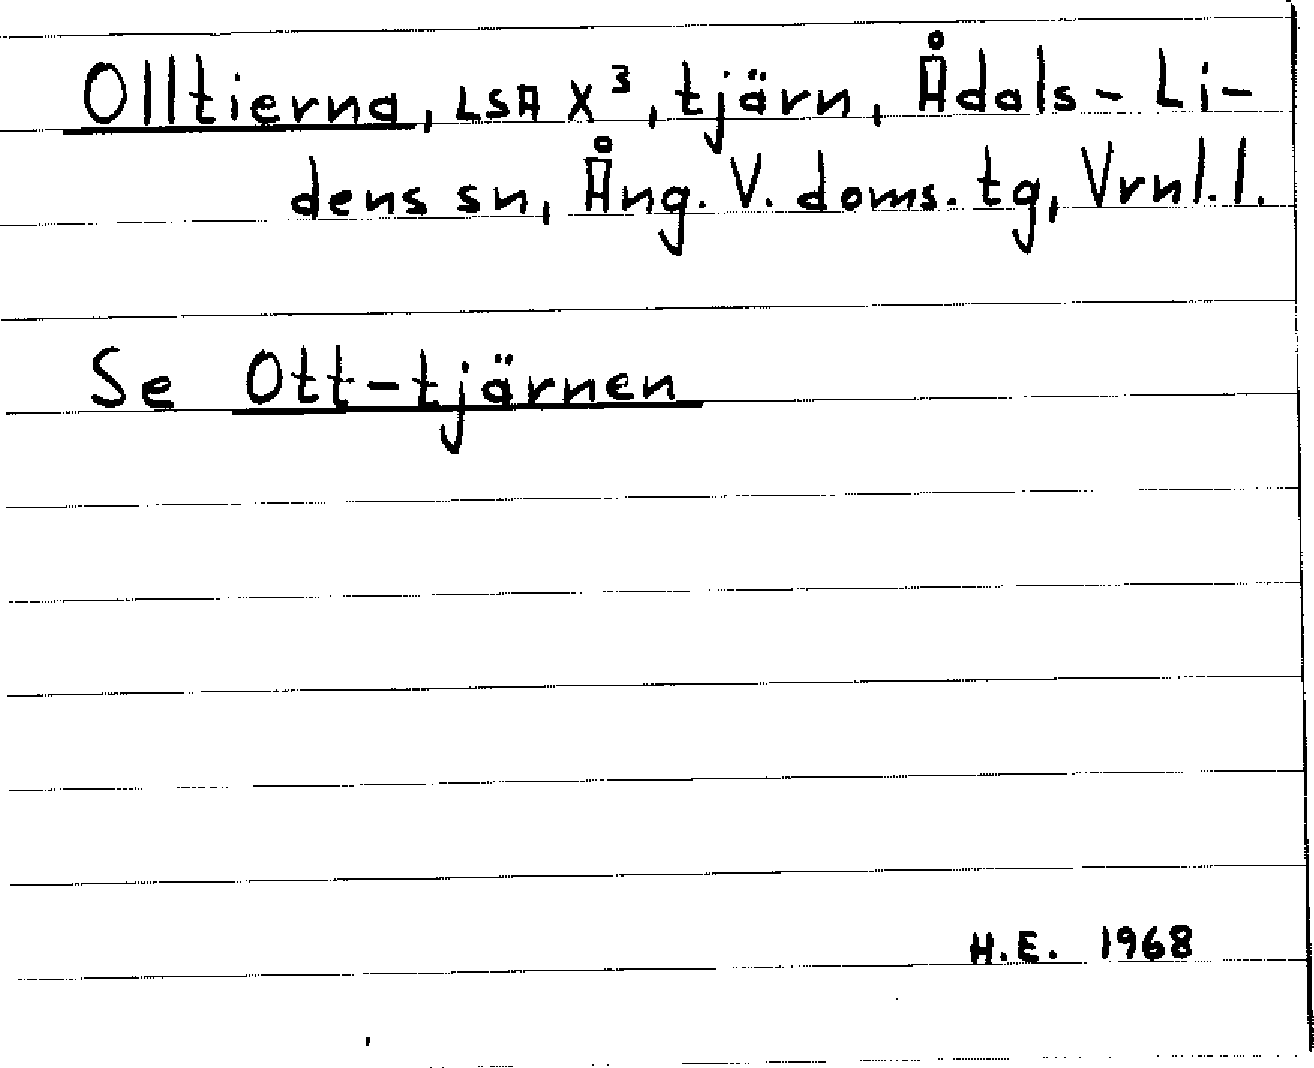 Olltierna, LSA X³, tjärn, Ådals-Li-
dens sn, Ång. V. doms. tg, Vrnl. l.
Se Ott-tjärnen
H.E. 1968